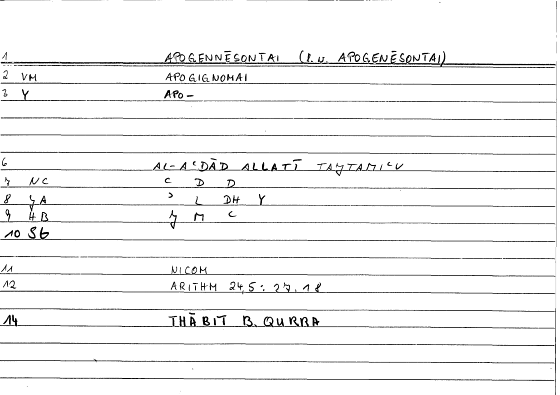 1 APOGENNĒSONTAI (l.u. APOGENĒSONTAI)
2 VM APOGIGNOMAI
3 Y APO-
6 AL-AʿDĀD ALLATĪ
7 NC ʿ D D
8 ʾ L DH Y
9 M ʿ
10 SG
11 NICOM
12 ARITHM 24,5: 27,18
14 THĀBIT B. QURRA